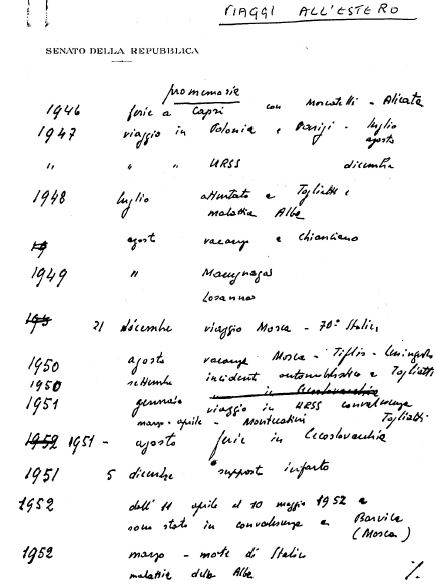 VIAGGI ALL'ESTERO
SENATO DELLA REPUBBLICA
promemoria
1946 ferie a Capri con Moscatelli - Alicata
1947 viaggio in Polonia e Parigi - luglio agosto
" " " URSS dicembre
1948 luglio attentato a Togliatti e
malattia Alba
agosto vacanze a Chianciano
1949 " Macugnaga
Losanna
21 dicembre viaggio Mosca - 70° Stalin
1950 agosto vacanze Mosca - Tiflis - Leningrado
1950 settembre incidente automobilistico a Togliatti
1951 gennaio viaggio in URSS convalescenza Togliatti
marzo - aprile - Montecatini
1952 1951 - agosto ferie in Cecoslovacchia
1951 5 dicembre supposto infarto
1952 dall' 11 aprile al 10 maggio 1952
sono stato in convalescenza a Barvika
(Mosca)
1952 marzo - morte di Stalin
malattia della Alba